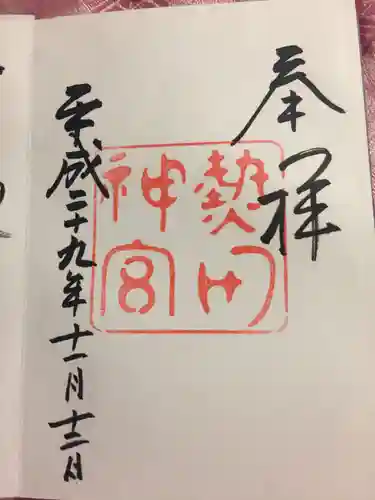 奉拝
熱田
神宮
平成二十九年十一月十二日